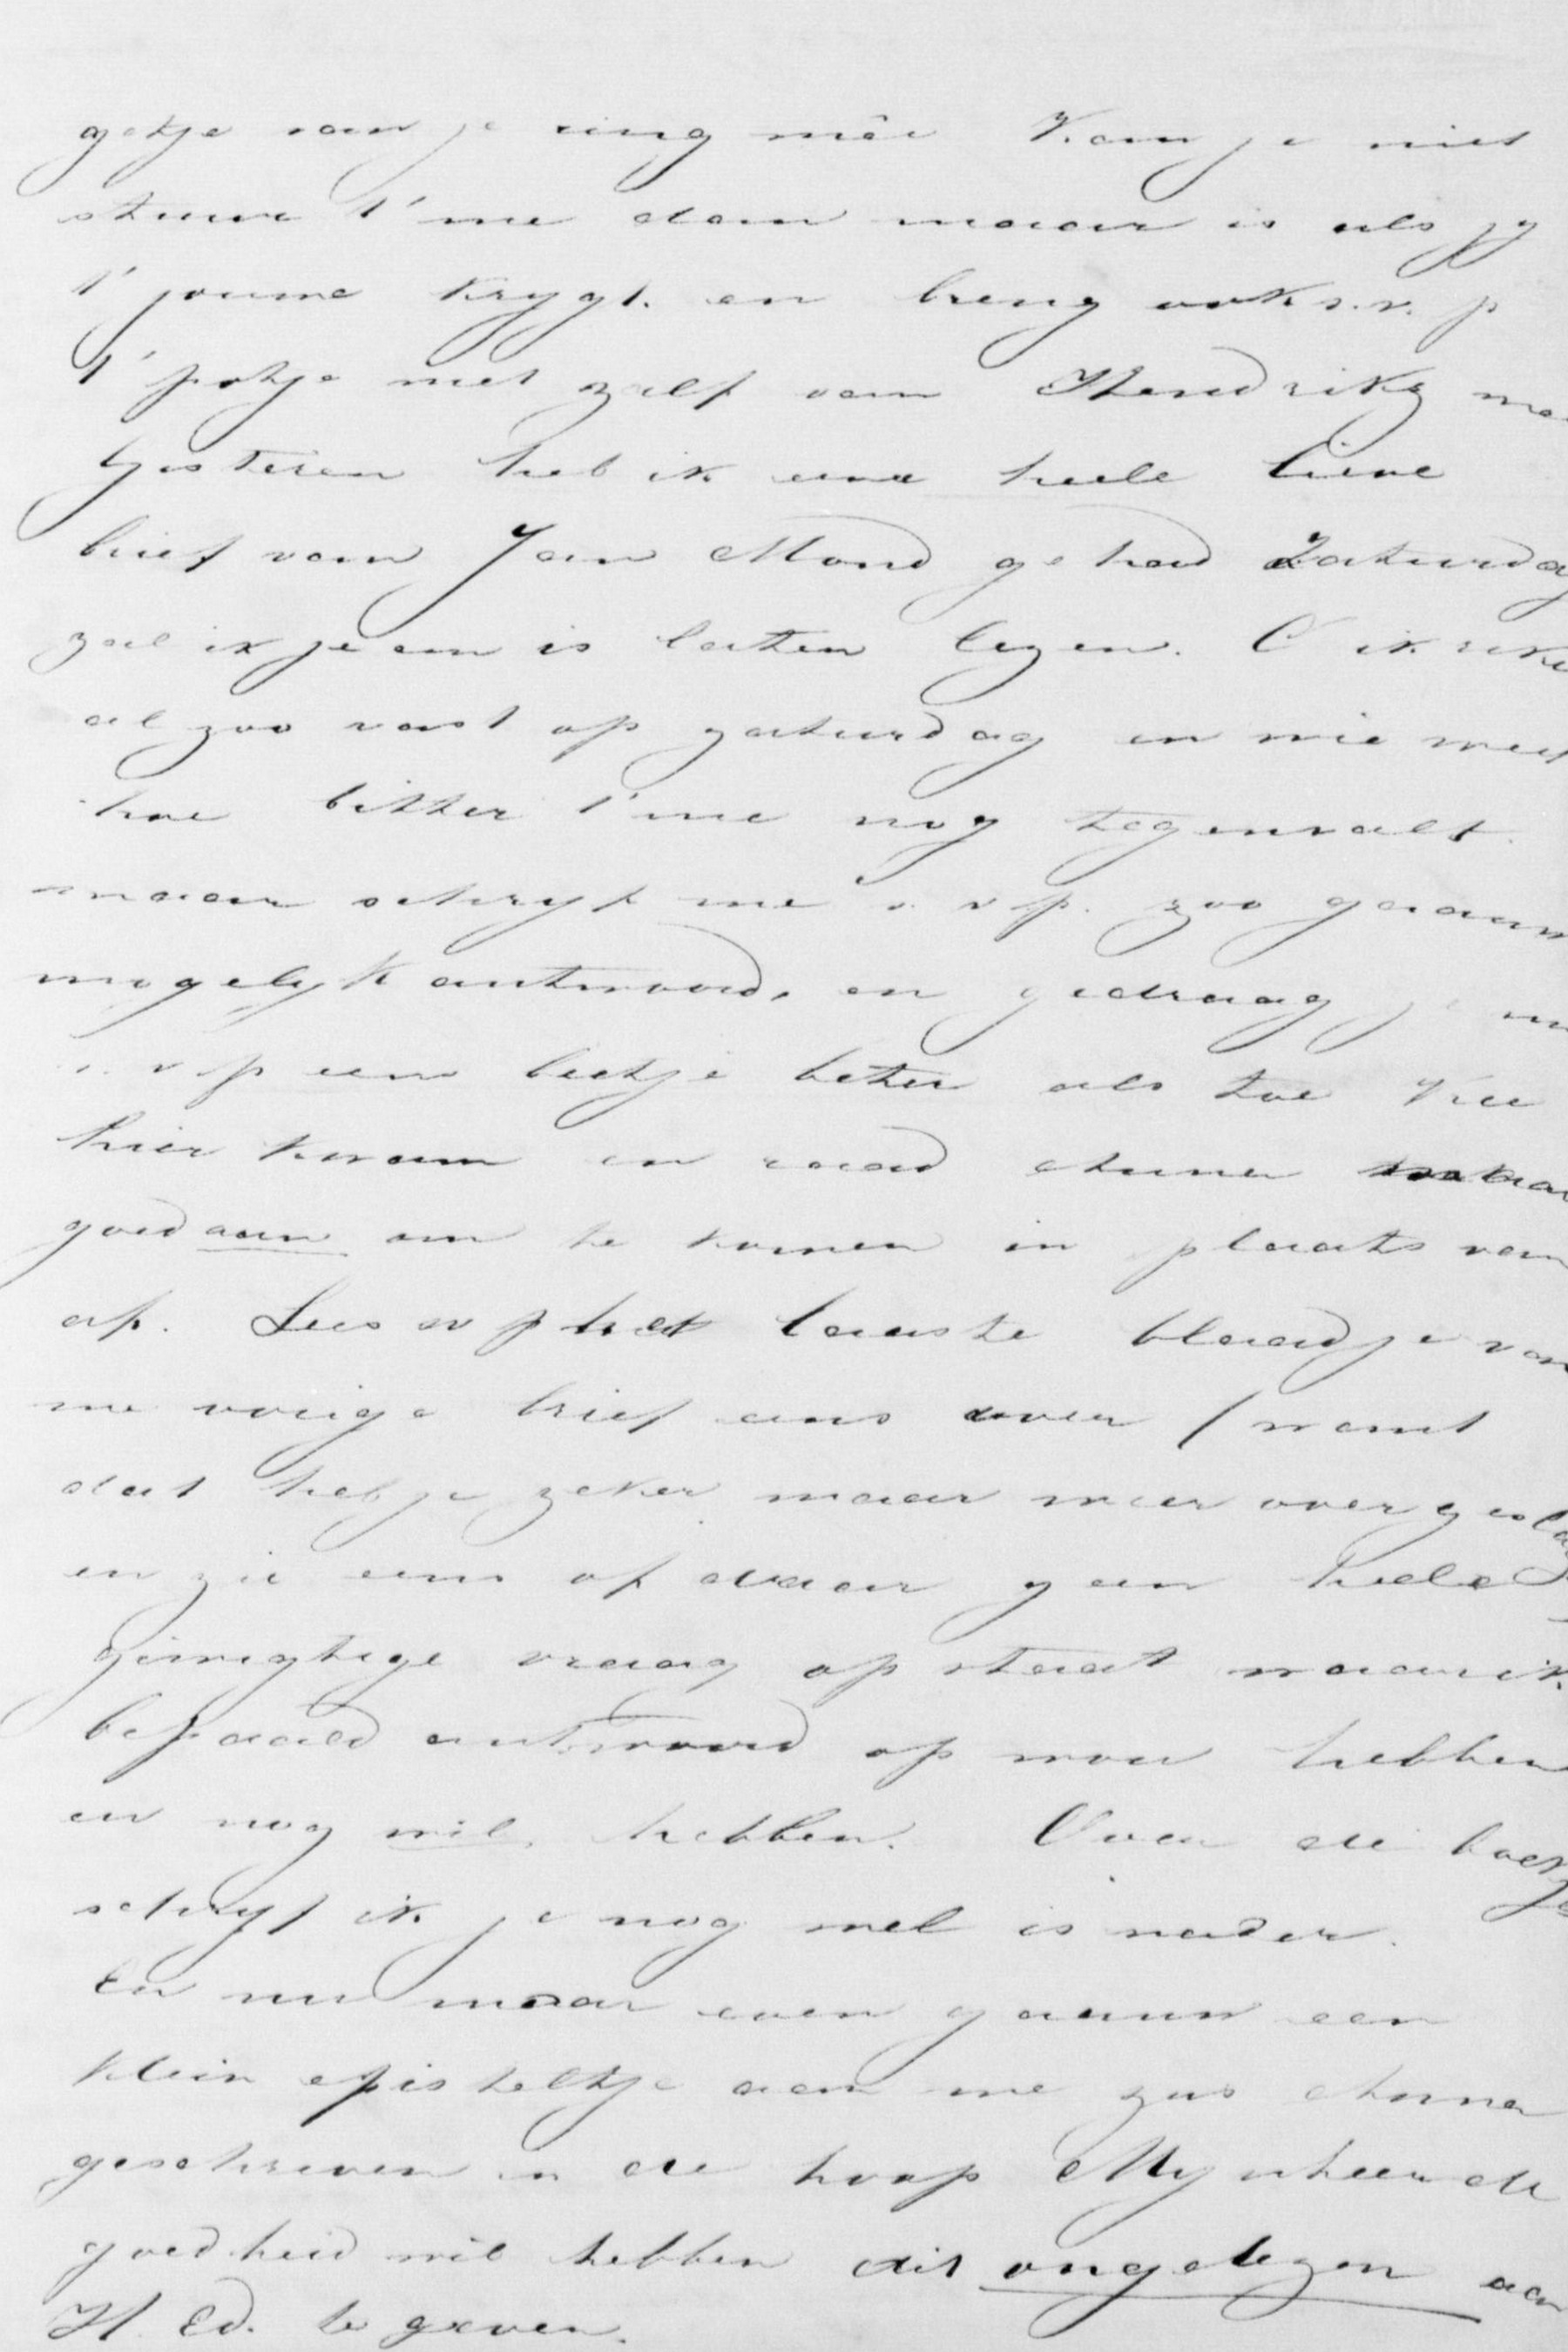 gotje van je ring meê Kan je niet
stuur t' me dan maar is als jy
t' jouwe krygt. en breng ook s.v.p
t' potje met zalf van Hendriks me
Gisteren heb ik eene heele lieve
brief van Jan Mond gehad Zaturdag
zal ik je em is laten lezen. O ik reke
al zoo vast op zaturdag en wie weet
hoe bitter t' me nog tegenvalt.
maar schryf me s.v.p. zoo gaauw
mogelyk antwoord, en gedraag je nu
s.v.p een beetje beter als toe Kee
hier kwam en raad Anna maar
goed aan om te komen in plaats van
af. Lees svp het laaste blaadje van
me vorige brief eens over (want
dat heb je zeker maar weer overgesla
en zie eens of daar geen heele
gewigtige vraag op staat waar ik
bepaald antwoord op wou hebben
en nog wil hebben. Over die boekjes
schryf ik je nog wel is nader.
En nu maar even gaauw een
klein episteltje aan me zus Anna
geschreven in de hoop Mynheer de
goedheid wil hebben dit ongelezen aan
H. Ed. te geven.